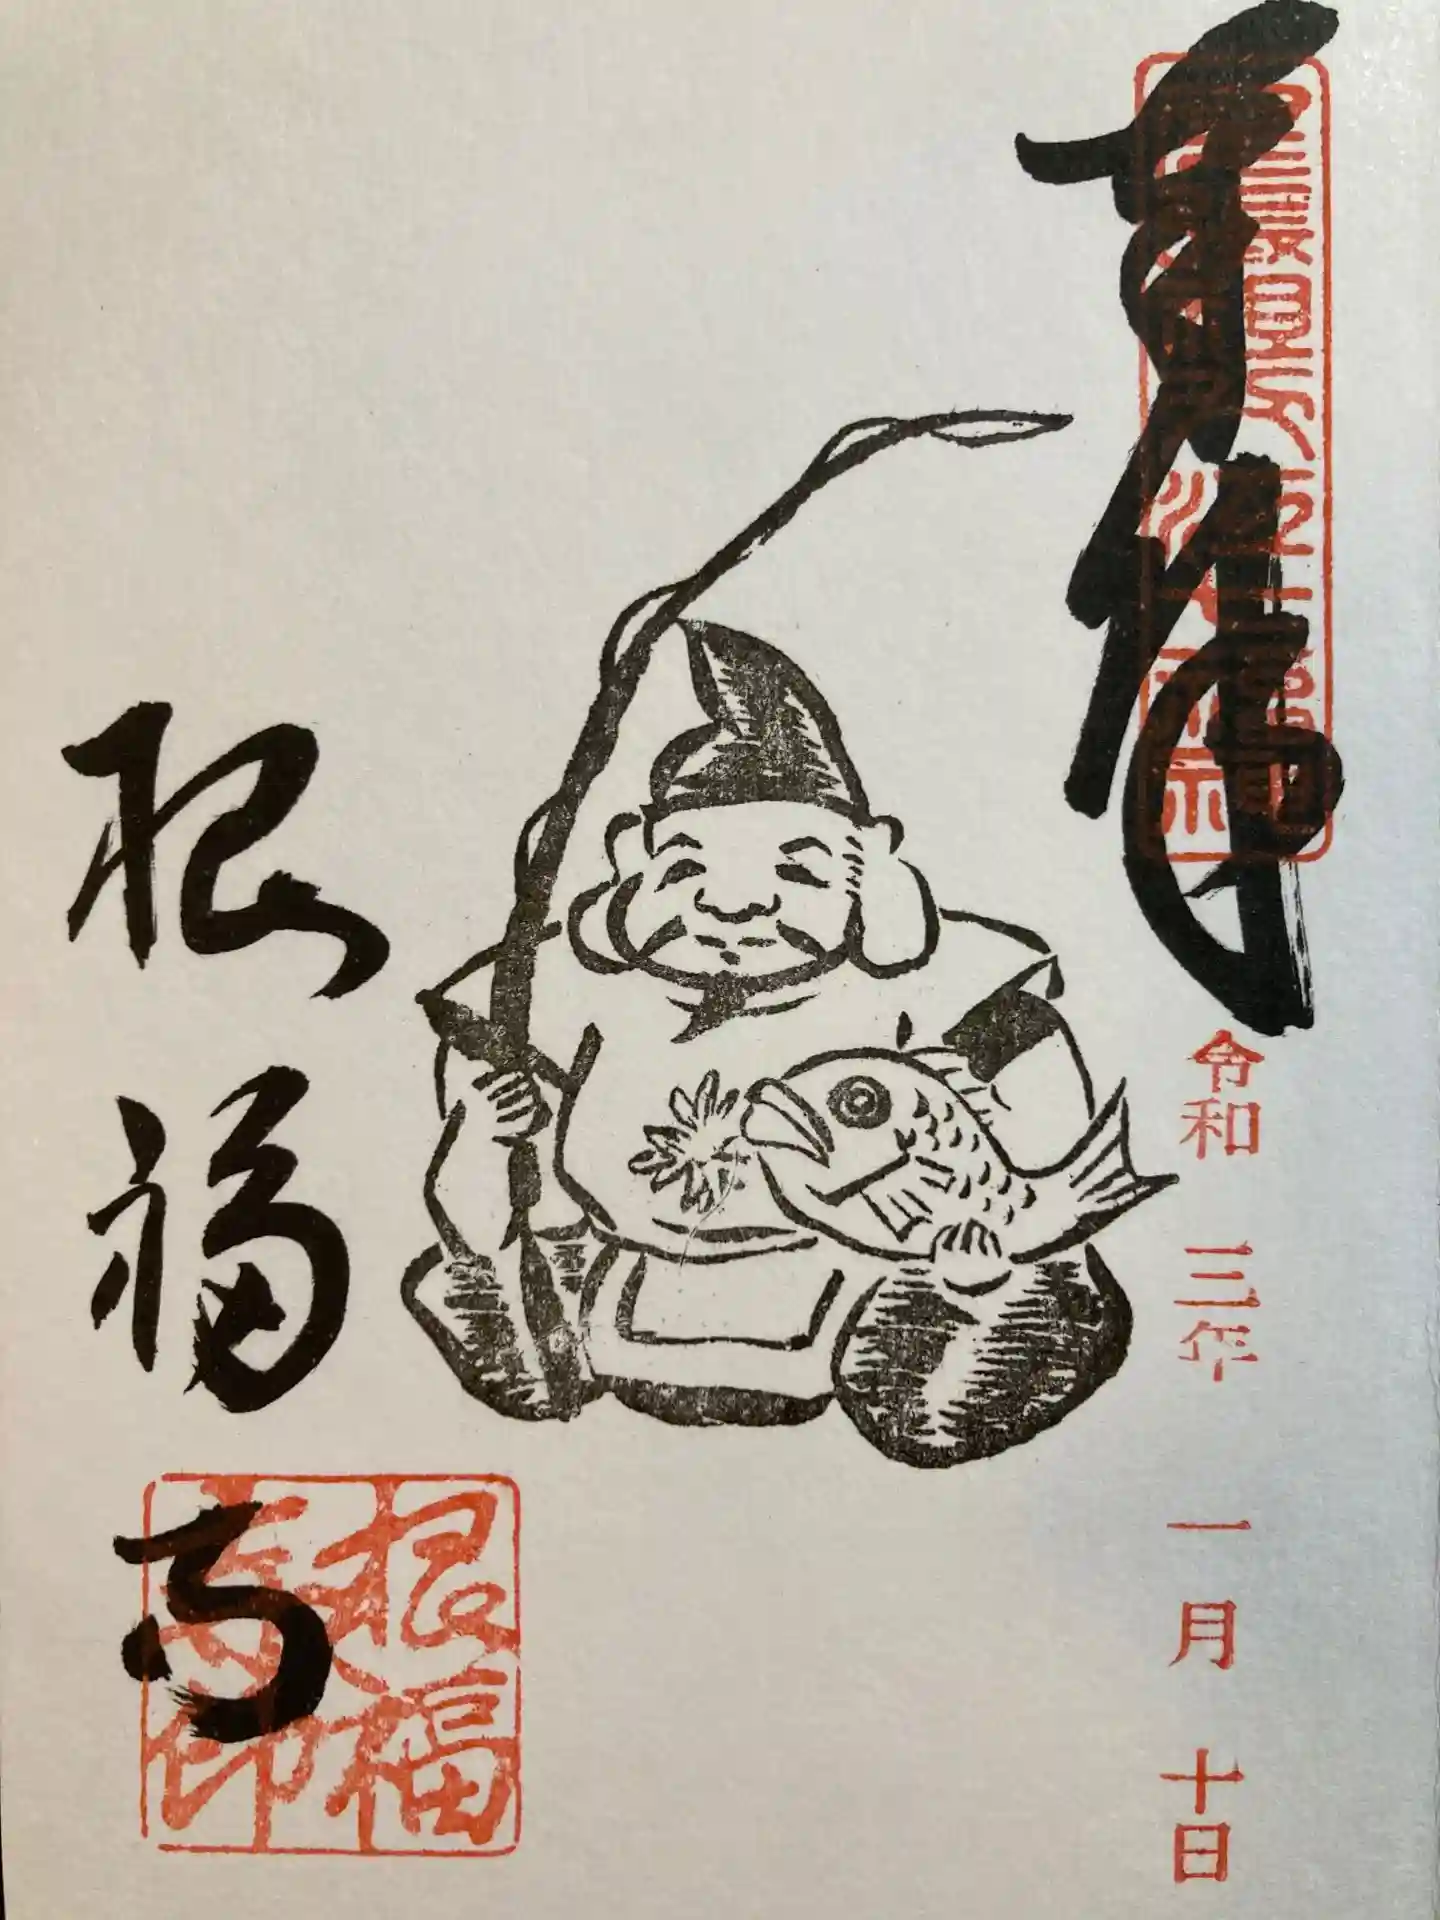 奉拝
令和 三年 一月 十日
根福寺
根福
寺印